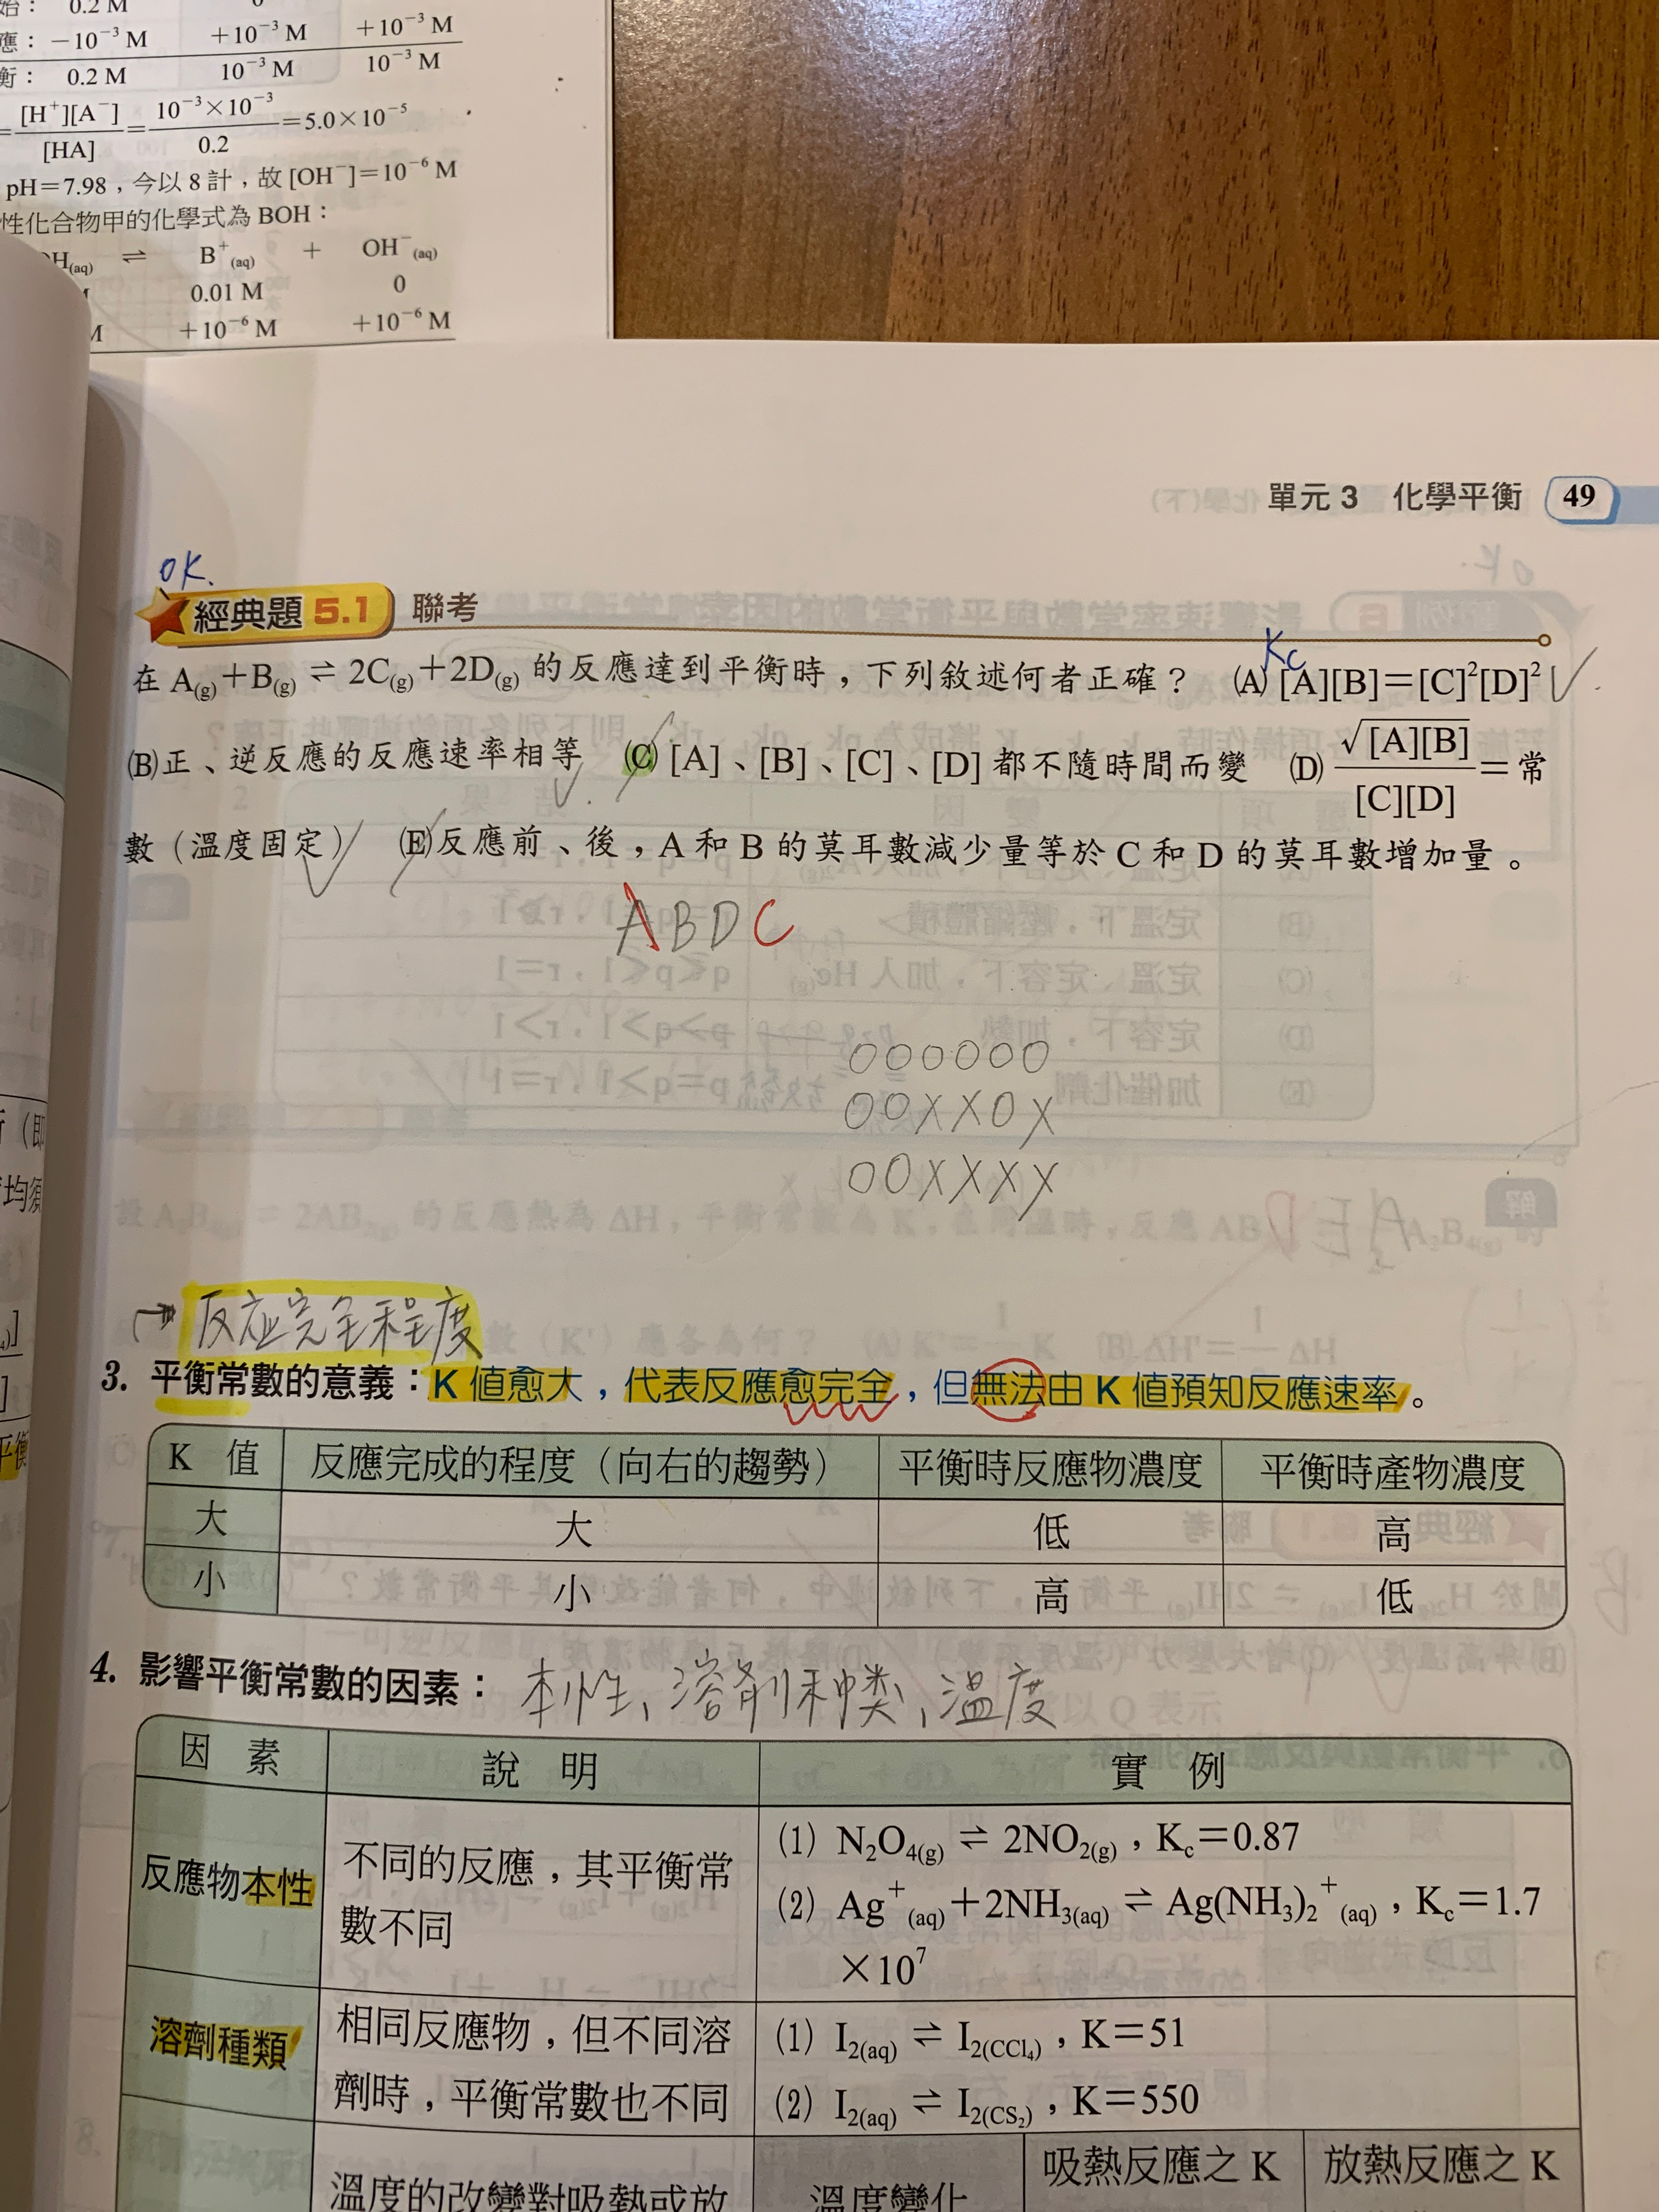 始： 0.2 M 0
應： −10⁻³ M +10⁻³ M +10⁻³ M
衡： 0.2 M 10⁻³ M 10⁻³ M
=[H⁺][A⁻]/[HA]=10⁻³×10⁻³/0.2=5.0×10⁻⁵
pH=7.98，今以 8 計，故 [OH⁻]=10⁻⁶ M
性化合物甲的化學式為 BOH：
OH(aq) ⇌ B⁺(aq) + OH⁻(aq)
M 0.01 M 0
M +10⁻⁶ M +10⁻⁶ M
單元 3 化學平衡 49
OK.
經典題 5.1 聯考
Kc
在 A(g)+B(g) ⇌ 2C(g)+2D(g) 的反應達到平衡時，下列敘述何者正確？ (A) [A][B]=[C]²[D]²
(B)正、逆反應的反應速率相等 (C) [A]、[B]、[C]、[D] 都不隨時間而變 (D) √[A][B]/[C][D]=常
數（溫度固定） (E)反應前、後，A 和 B 的莫耳數減少量等於 C 和 D 的莫耳數增加量。
ABDC
OOOOOO
OOXXOX
OOXXXX
→ 反应完全程度
3. 平衡常數的意義：K 值愈大，代表反應愈完全，但無法由 K 值預知反應速率。
K 值 反應完成的程度（向右的趨勢） 平衡時反應物濃度 平衡時產物濃度
大 大 低 高
小 小 高 低
4. 影響平衡常數的因素： 本性、溶劑种类、温度
因 素 說 明 實 例
反應物本性 不同的反應，其平衡常
數不同
(1) N₂O₄(g) ⇌ 2NO₂(g)，Kc=0.87
(2) Ag⁺(aq)+2NH₃(aq) ⇌ Ag(NH₃)₂⁺(aq)，Kc=1.7
×10⁷
溶劑種類 相同反應物，但不同溶
劑時，平衡常數也不同
(1) I₂(aq) ⇌ I₂(CCl₄)，K=51
(2) I₂(aq) ⇌ I₂(CS₂)，K=550
溫度的改變對吸熱或放 溫度變化 吸熱反應之 K 放熱反應之 K